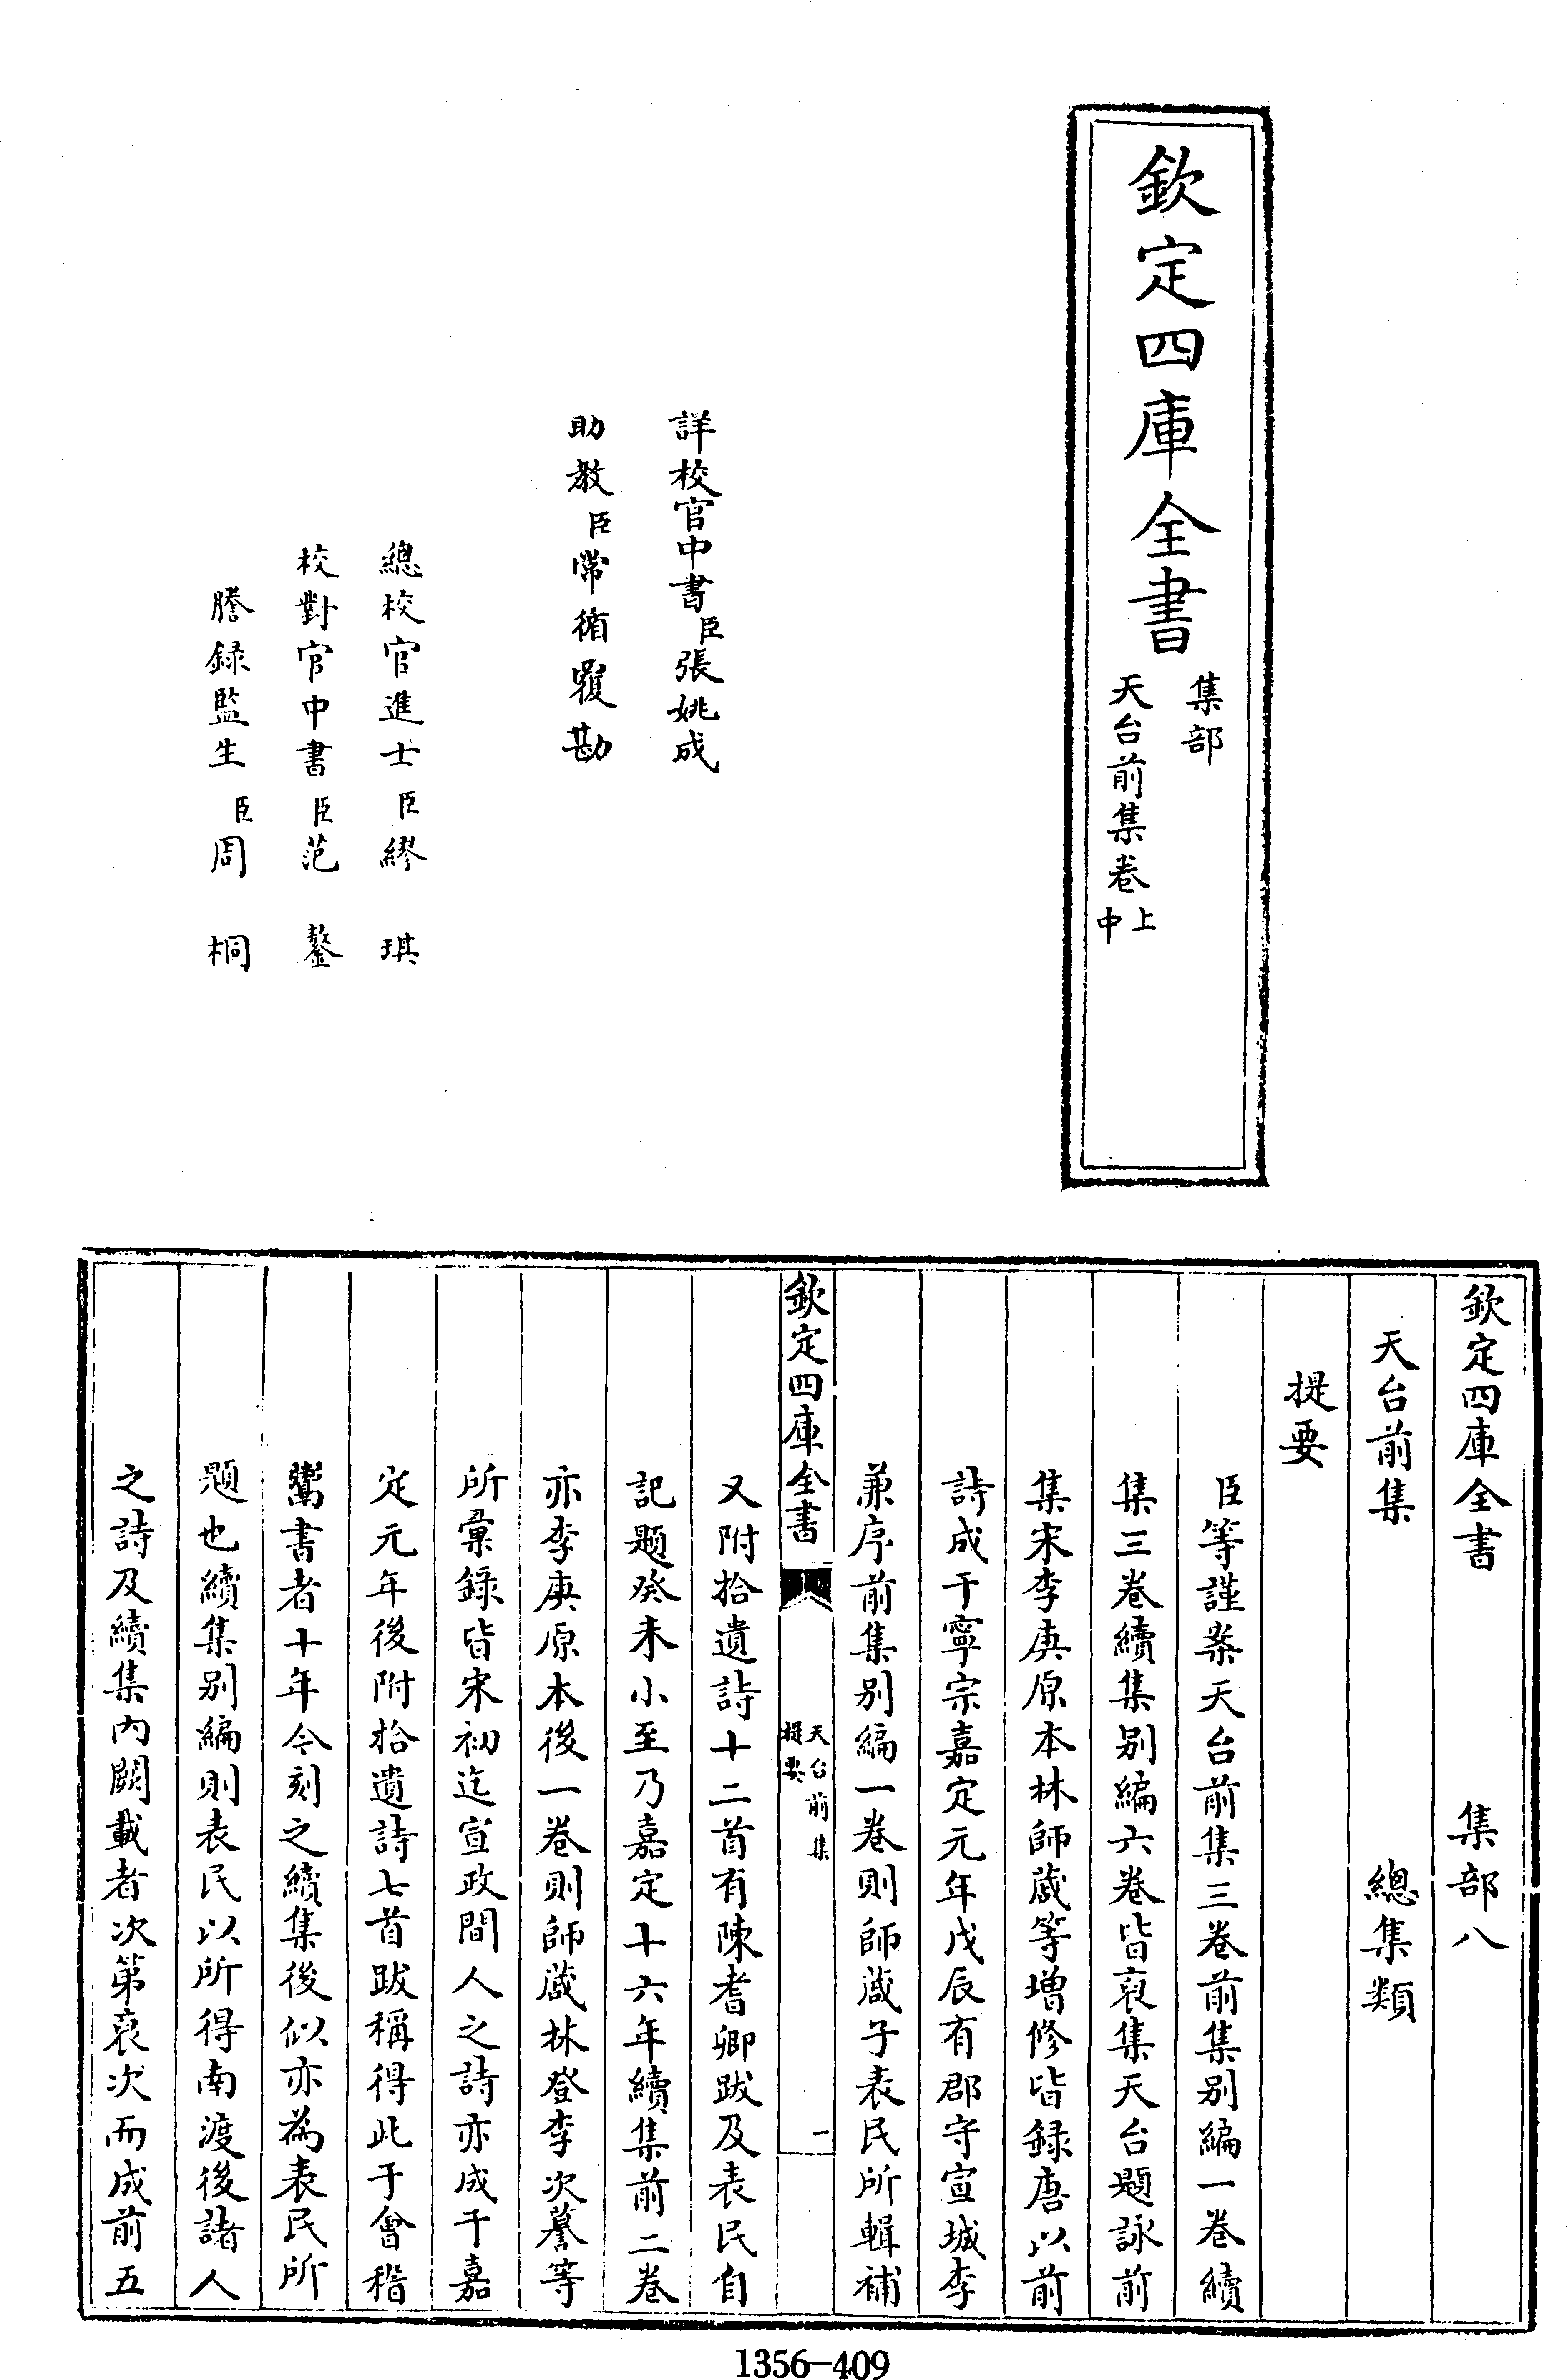 欽定四庫全書
集部
天台前集卷上中
詳校官中書臣張姚成
助教臣常循覆勘
總校官進士臣繆琪
校對官中書臣范鏊
謄録監生臣周桐
欽定四庫全書 集部八
天台前集 總集類
提要
臣等謹案天台前集三卷前集別編一卷續
集三卷續集別編六卷皆裒集天台題詠前
集宋李庚原本林師蒧等增修皆録唐以前
詩成于寧宗嘉定元年戊辰有郡守宣城李
兼序前集別編一卷則師蒧子表民所輯補
欽定四庫全書
天台前集
提要
一
又附拾遺詩十二首有陳耆卿跋及表民自
記題癸未小至乃嘉定十六年續集前二卷
亦李庚原本後一卷則師蒧林登李次謩等
所彙錄皆宋初迄宣政間人之詩亦成于嘉
定元年後附拾遺詩七首跋稱得此于會稽
鬻書者十年今刻之續集後似亦為表民所
題也續集別編則表民以所得南渡後諸人
之詩及續集內闕載者次第裒次而成前五
1356-409